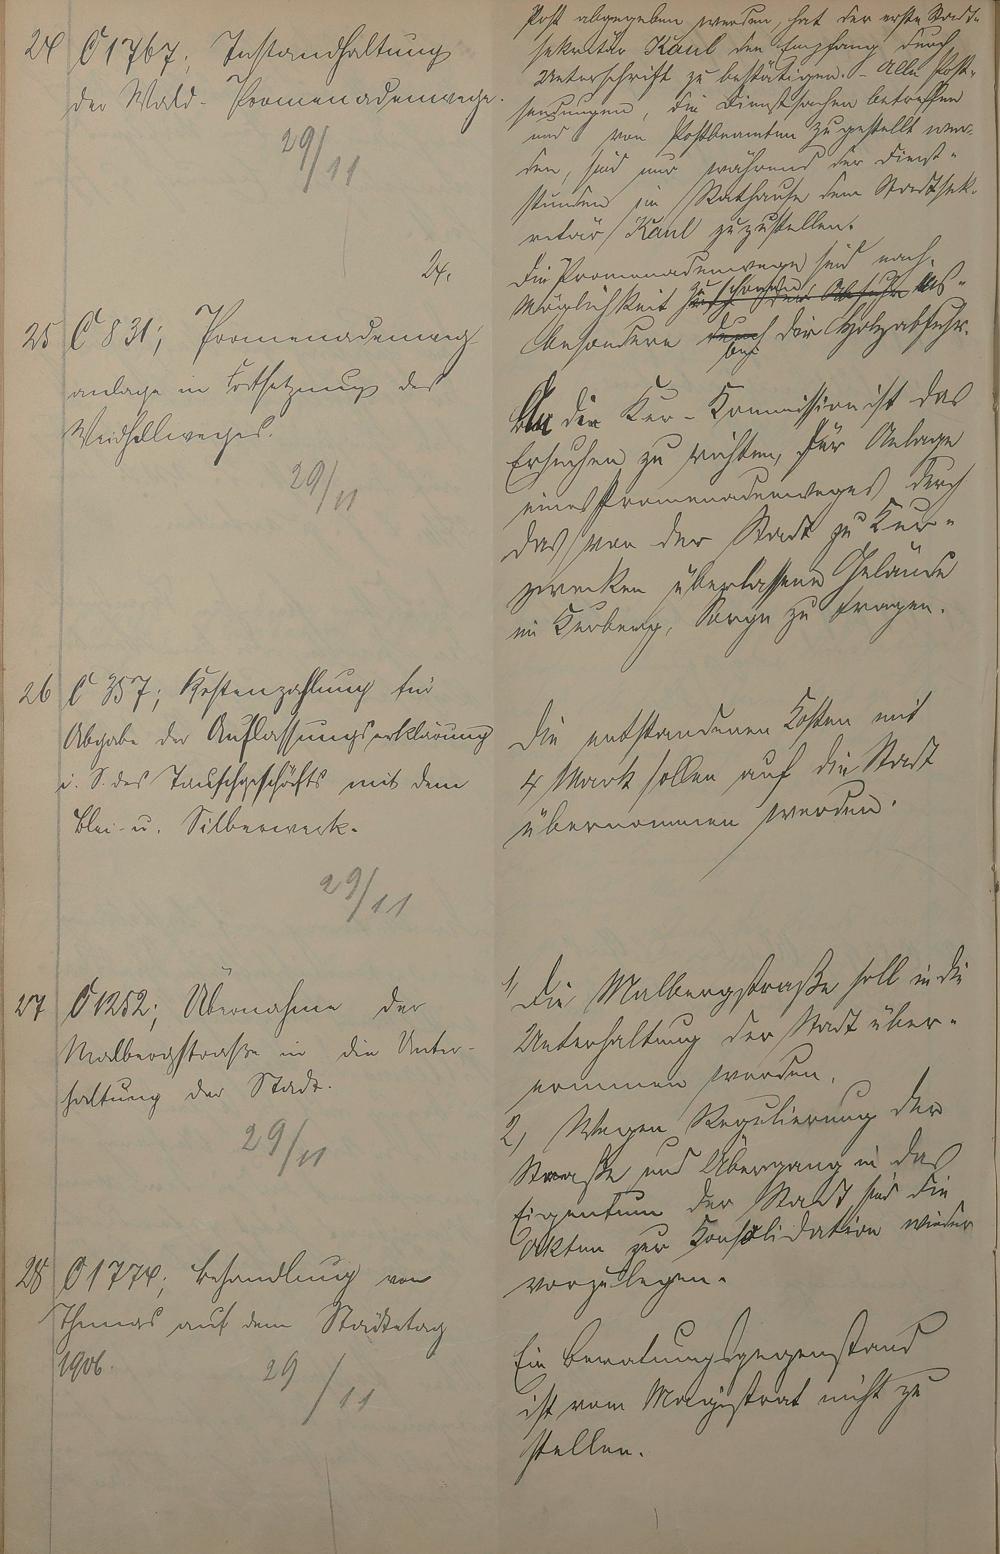 24 C 1767; Instandhaltung
der Wald-Promenadenwege.
29/11
25 C 831; Promenadenweg-
anlage in Fortsetzung des
Weidhellweges.
29/11
26 C 357; Kostenzahlung für
Abgabe der Auflassungserklärung
i. S. des Tauschgeschäfts mit dem
Blei- u. Silberwerk.
29/11
27 C 1252; Übernahme der
Malbergstraße in die Unter-
haltung der Stadt.
29/11
28 C 1774; Behandlung von
Themas auf dem Städtetag
1906.
29/11
Post abgegeben werden, hat der erste Stadt-
sekretär Kaul den Empfang durch
Unterschrift zu bestätigen. - Alle Post-
sendungen, die Dienstsachen betreffen
und von Postbeamten zugestellt wer-
den, sind nur während der Dienst-
stunden im Rathause dem Stadtsek-
retär Kaul zuzustellen.
24.
Die Promenadenwege sind nach
Möglichkeit zu schonen, ins-
besondere bei der Holzabfuhr.
An die Kur-Kommission ist das
Ersuchen zu richten, für Anlage
eines Promenadenweges durch
das von der Stadt zu Kur-
zwecken überlassene Gelände
im Kurberg, Sorge zu tragen.
Die entstandenen Kosten mit
4 Mark sollen auf die Stadt
übernommen werden.
1, Die Malbergstraße soll in die
Unterhaltung der Stadt über-
nommen werden.
2, Wegen Regulierung der
Straße und Übergang in das
Eigentum der Stadt sind die
Akten zur Konsolidation wieder
vorzulegen.
Ein Beratungsgegenstand
ist vom Magistrat nicht zu
stellen.